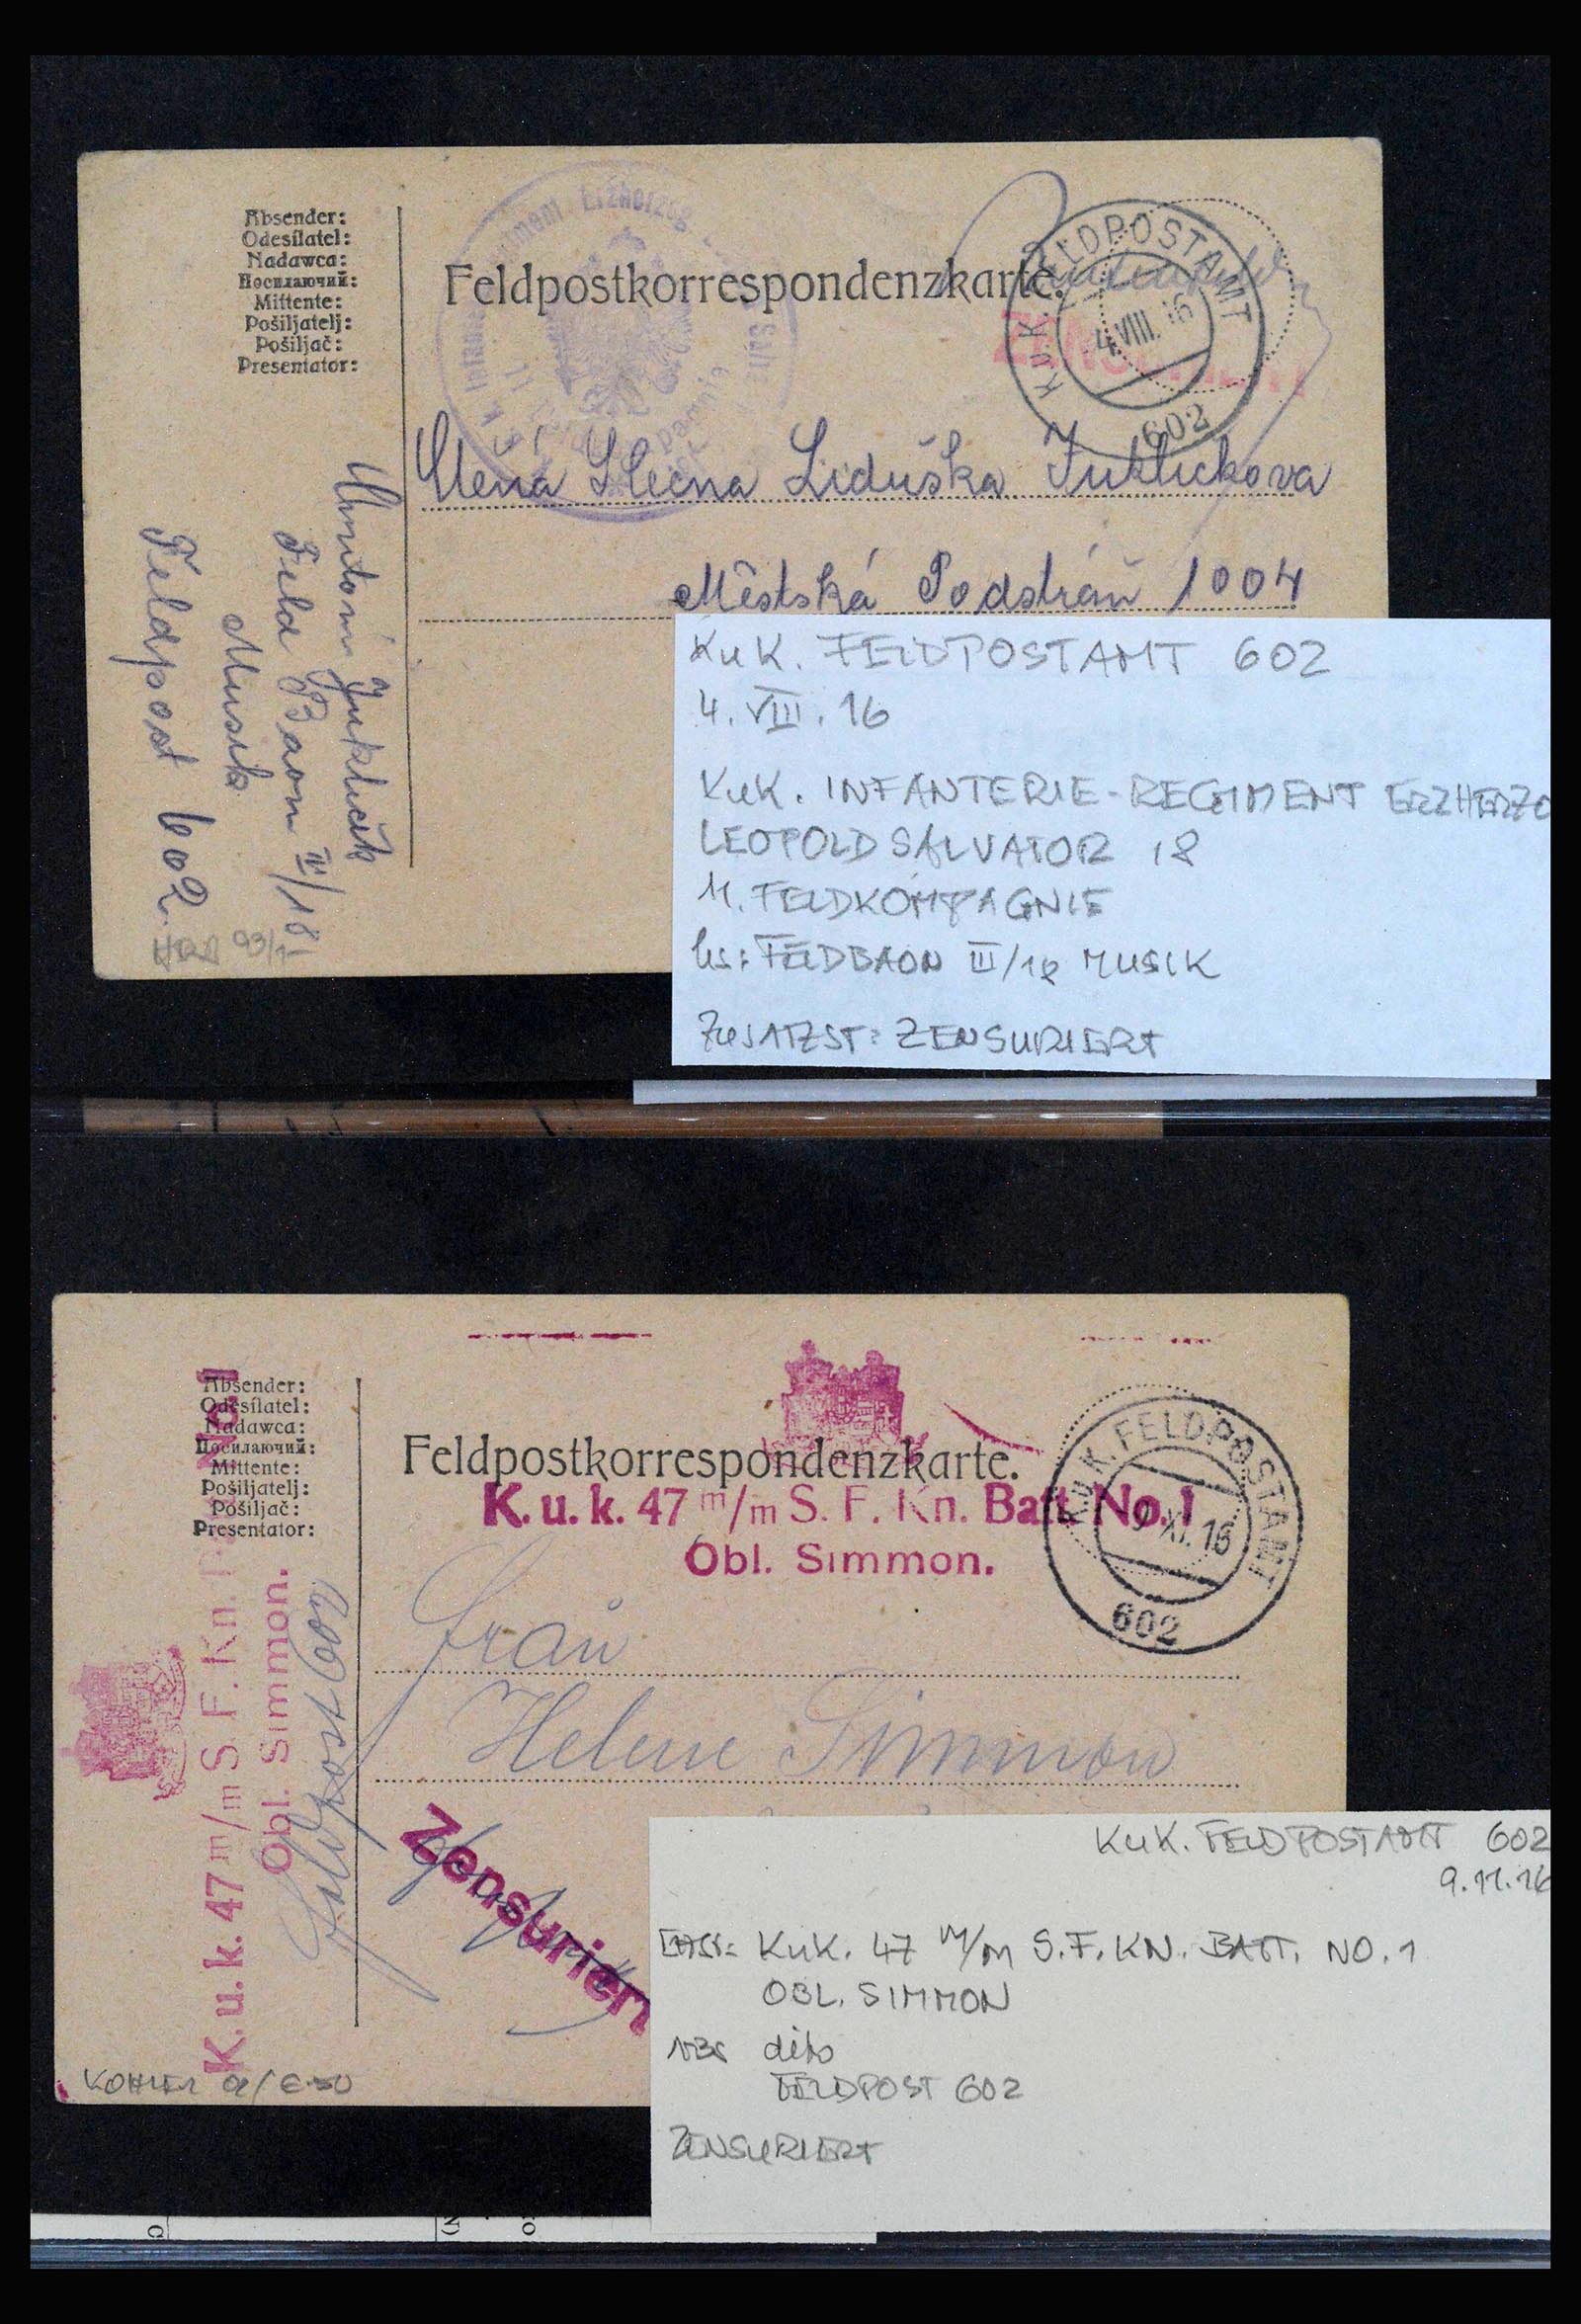 Absender:
Odesílatel:
Nadawca:
Посилаючий:
Mittente:
Pošiljatelj:
Pošiljač:
Presentator:
Feldpostkorrespondenzkarte.
K.u.K. FELDPOSTAMT
4.VIII.16
602
ZENSURIERT
Slečna Liduška
Městská Podstráň 1004
Antonín
Feld Baon III/18
Musik
Feldpost 602.
93/
KuK. FELDPOSTAMT 602
4. VIII. 16
KuK. INFANTERIE-REGIMENT ERZHERZO
LEOPOLD SALVATOR 18
11. FELDKOMPAGNIE
hs: FELDBAON III/18 MUSIK
ZUSATZST: ZENSURIERT
Absender:
Odesílatel:
Nadawca:
Посилаючий:
Mittente:
Pošiljatelj:
Pošiljač:
Presentator:
Feldpostkorrespondenzkarte.
K. u. k. 47 m/m S. F. Kn. Batt. No. 1
Obl. Simmon.
K.u.K. FELDPOSTAMT
9 XI. 16
602
Frau
Helene Simmon
Zensuriert
K. u. k. 47 m/m S. F. Kn. No. 1
Obl. Simmon.
Feldpost 602
KuK. FELDPOSTAMT 602
9.11.16
KuK. 47 M/M S.F. KN. BATT. NO. 1
OBL. SIMMON
dito
FELDPOST 602
ZENSURIERT